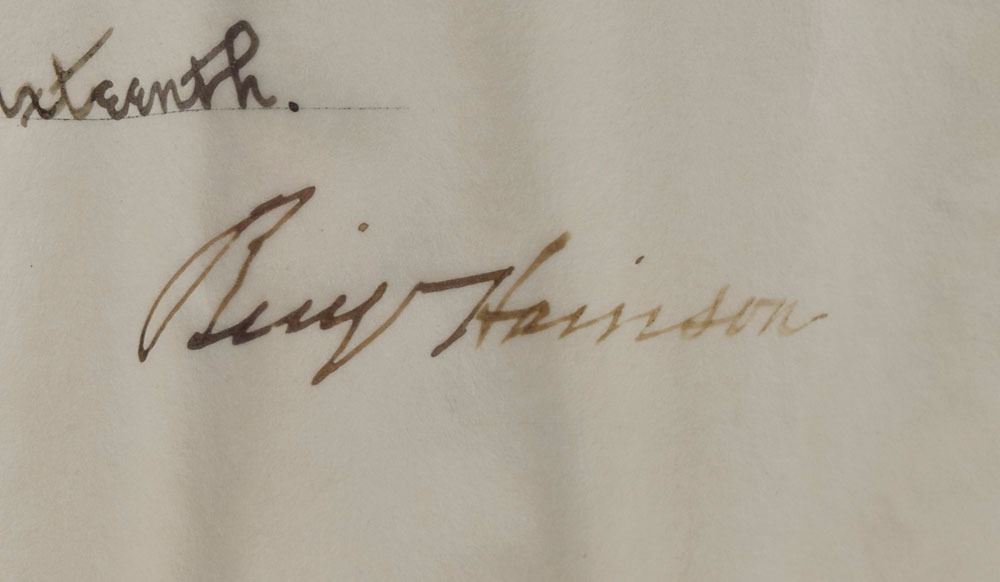 ixteenth.
Benj Harrison